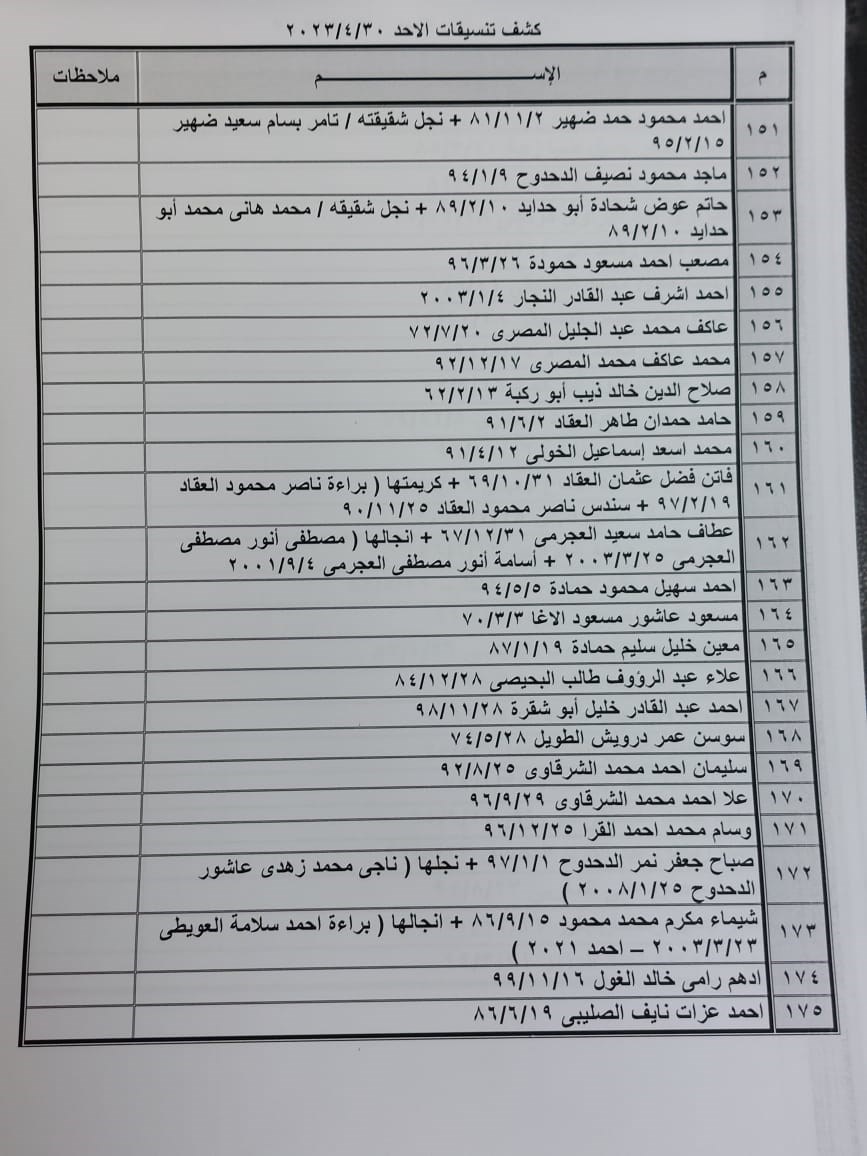 كشف تنسيقات الاحد ٢٠٢٣/٤/٣٠
م الإســـــــــم ملاحظات
١٥١ احمد محمود حمد ضهير ٨١/١١/٢ + نجل شقيقته / تامر بسام سعيد ضهير
٩٥/٢/١٥
١٥٢ ماجد محمود نصيف الدحدوح ٩٤/١/٩
١٥٣ حاتم عوض شحادة أبو حدايد ٨٩/٢/١٠ + نجل شقيقه / محمد هانى محمد أبو
حدايد ٨٩/٢/١٠
١٥٤ مصعب احمد مسعود حمودة ٩٦/٣/٢٦
١٥٥ احمد اشرف عبد القادر النجار ٢٠٠٣/١/٤
١٥٦ عاكف محمد عبد الجليل المصرى ٧٢/٧/٢٠
١٥٧ محمد عاكف محمد المصرى ٩٢/١٢/١٧
١٥٨ صلاح الدين خالد ذيب أبو ركبة ٦٢/٢/١٣
١٥٩ حامد حمدان طاهر العقاد ٩١/٦/٢
١٦٠ محمد اسعد إسماعيل الخولى ٩١/٤/١٢
١٦١ فاتن فضل عثمان العقاد ٦٩/١٠/٣١ + كريمتها ( براءة ناصر محمود العقاد
٩٧/٢/١٩ + سندس ناصر محمود العقاد ٩٠/١١/٢٥
١٦٢ عطاف حامد سعيد العجرمى ٦٧/١٢/٣١ + انجالها ( مصطفى أنور مصطفى
العجرمى ٢٠٠٣/٣/٢٥ + أسامة أنور مصطفى العجرمى ٢٠٠١/٩/٤
١٦٣ احمد سهيل محمود حمادة ٩٤/٥/٥
١٦٤ مسعود عاشور مسعود الاغا ٧٠/٣/٣
١٦٥ معين خليل سليم حمادة ٨٧/١/١٩
١٦٦ علاء عبد الرؤوف طالب البحيصى ٨٤/١٢/٢٨
١٦٧ احمد عبد القادر خليل أبو شقرة ٩٨/١١/٢٨
١٦٨ سوسن عمر درويش الطويل ٧٤/٥/٢٨
١٦٩ سليمان احمد محمد الشرقاوى ٩٢/٨/٢٥
١٧٠ علا احمد محمد الشرقاوى ٩٦/٩/٢٩
١٧١ وسام محمد احمد القرا ٩٦/١٢/٢٥
١٧٢ صباح جعفر نمر الدحدوح ٩٧/١/١ + نجلها ( ناجى محمد زهدى عاشور
الدحدوح ٢٠٠٨/١/٢٥ )
١٧٣ شيماء مكرم محمد محمود ٨٦/٩/١٥ + انجالها ( براءة احمد سلامة العويطى
٢٠٠٣/٣/٢٣ – احمد ٢٠٢١ )
١٧٤ ادهم رامى خالد الغول ٩٩/١١/١٦
١٧٥ احمد عزات نايف الصليبى ٨٦/٦/١٩